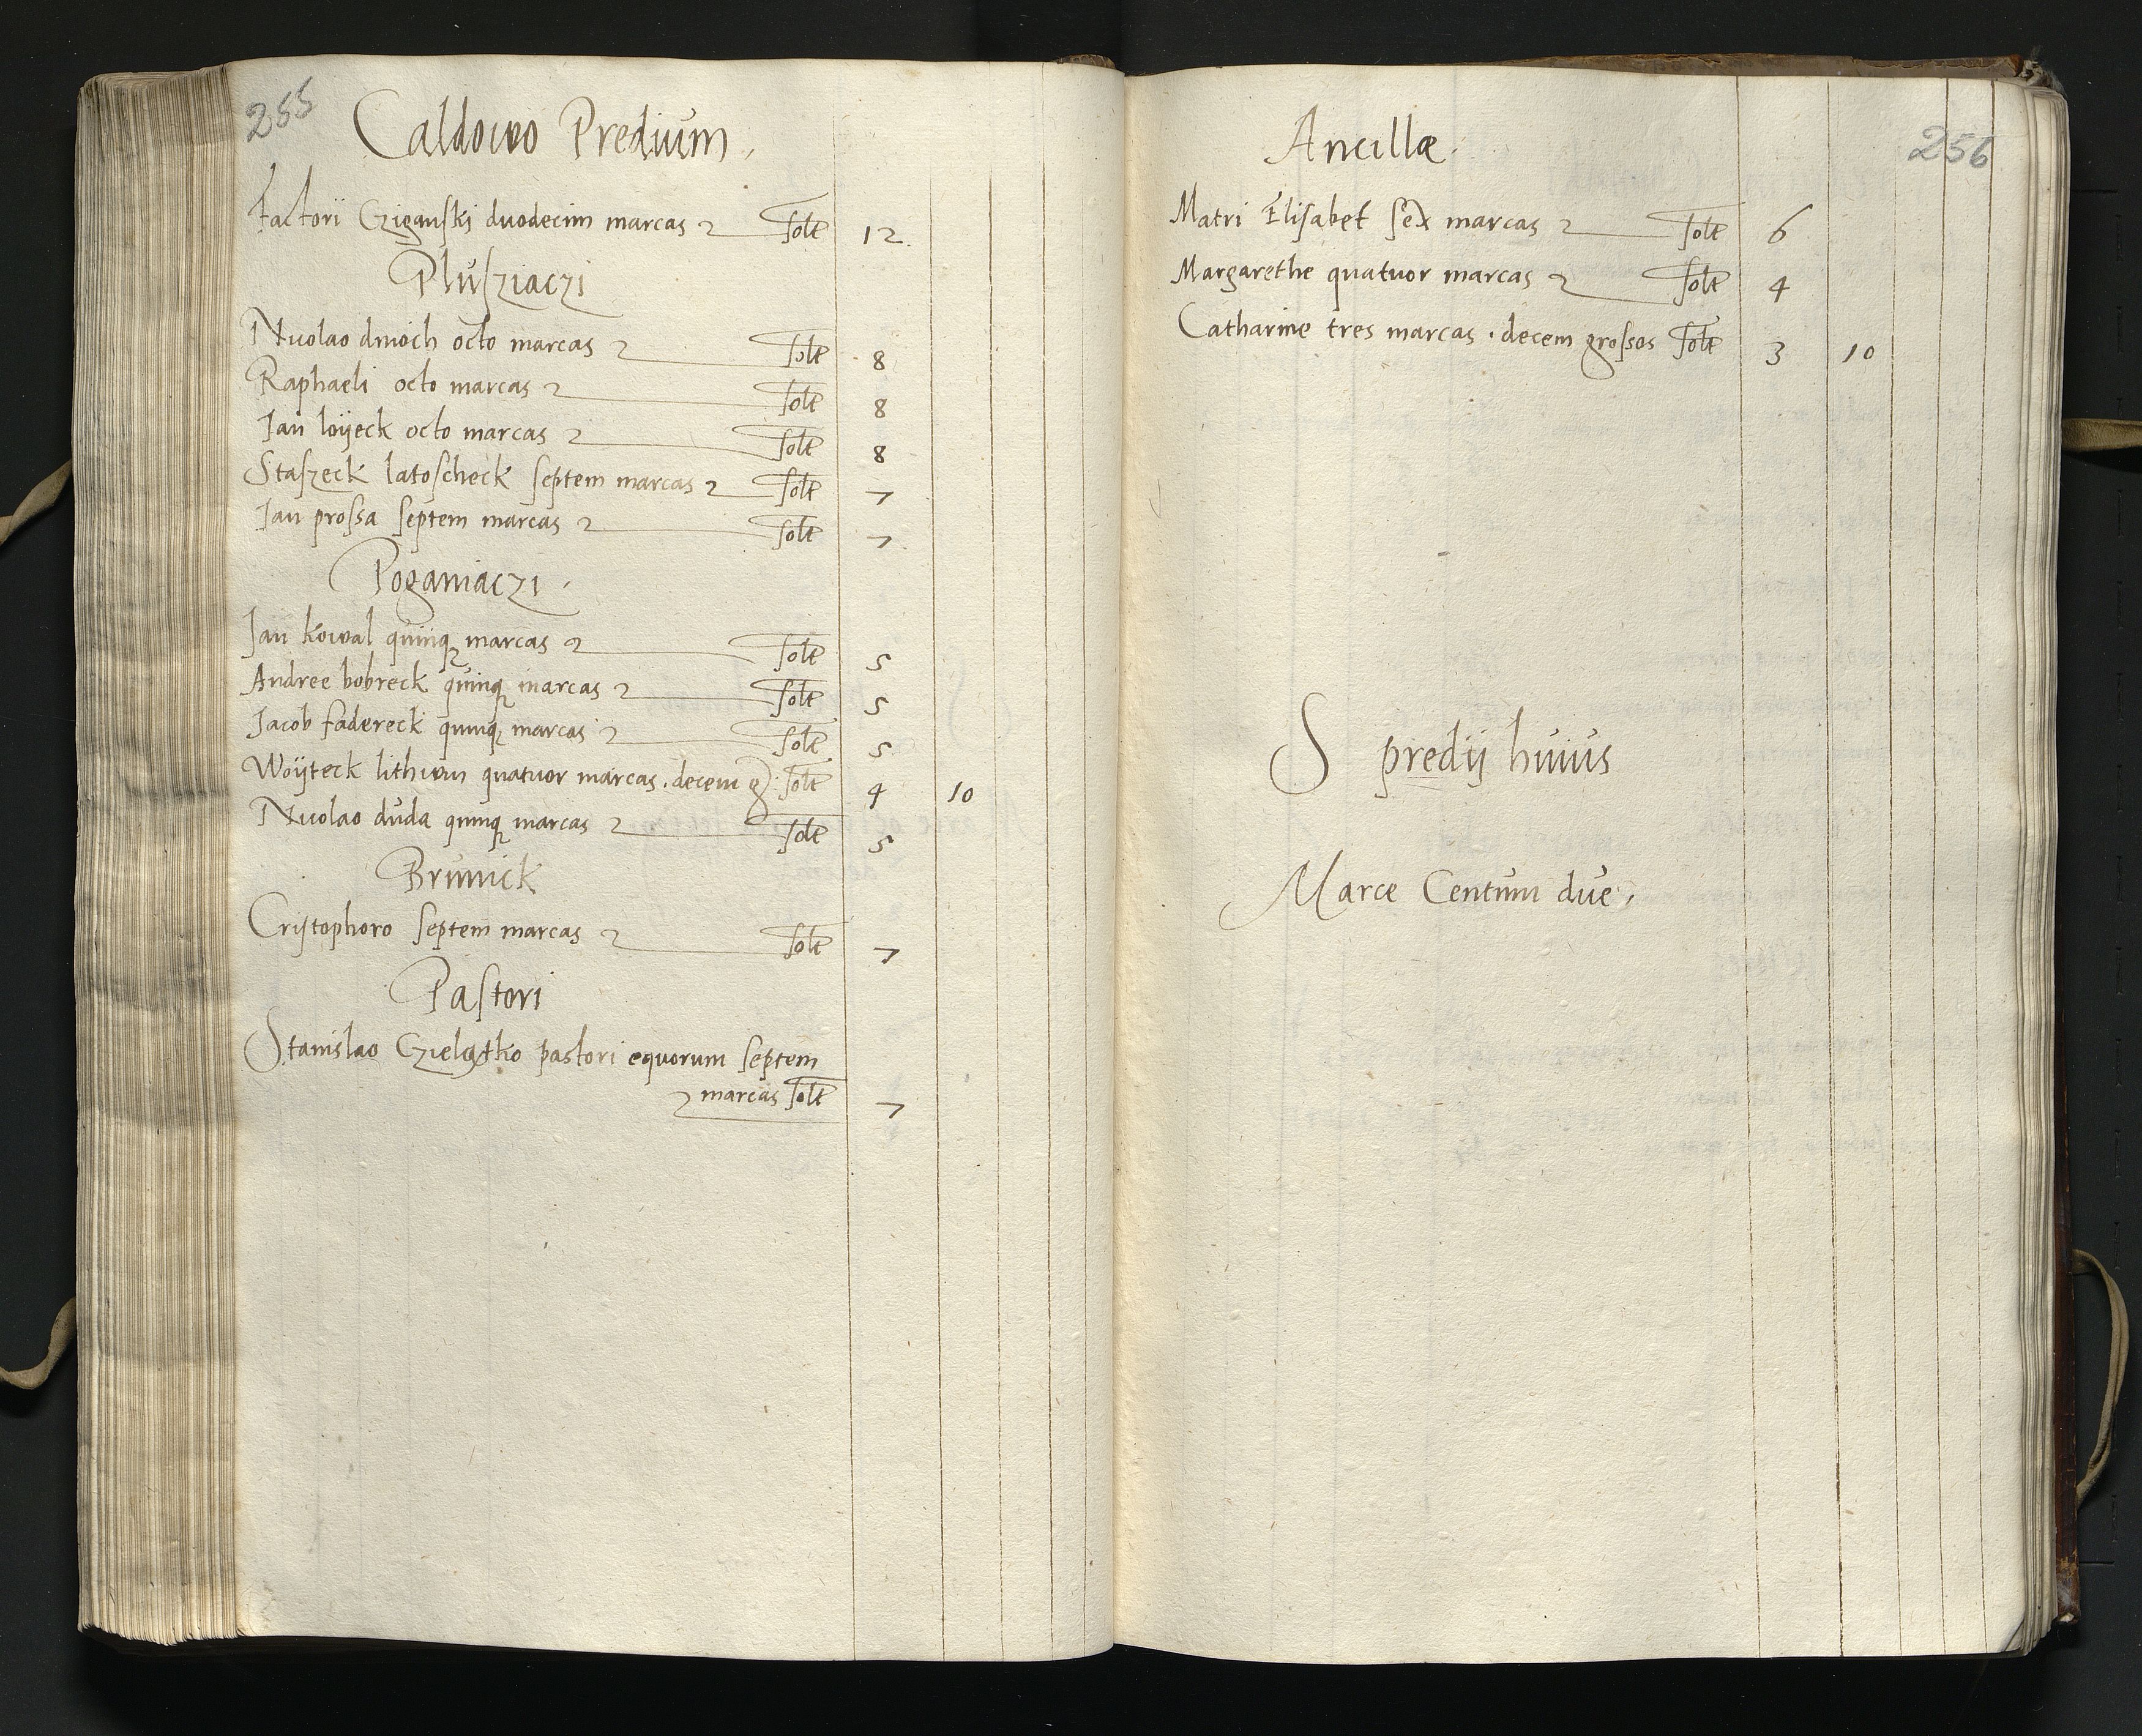 255
Caldowo Predium.
Factorii Cziganski duodecim marcas solt 12.
Plusziaczi
Nicolao dmoch octo marcas solt 8
Raphaeli octo marcas solt 8
Jan loÿeck octo marcas solt 8
Staszeck latoscheck septem marcas solt 7
Jan prossa septem marcas solt 7
Poganiaczi.
Jan kowal quinq marcas solt 5
Andree bobreck quinq marcas solt 5
Jacob fadereck quinq marcas solt 5
Woÿteck quatuor marcas. decem g solt 4 10
Nicolao duda quinq marcas solt 5
Brunick
Cristophoro septem marcas solt 7
Pastori
Stanislao Czielątko pastori equorum septem
marcas solt 7
256
Ancillæ.
Matri Elisabet sex marcas solt 6
Margarethe quatuor marcas solt 4
Catharine tres marcas. decem grossos solt 3 10
S predij huius
Marce Centum due.